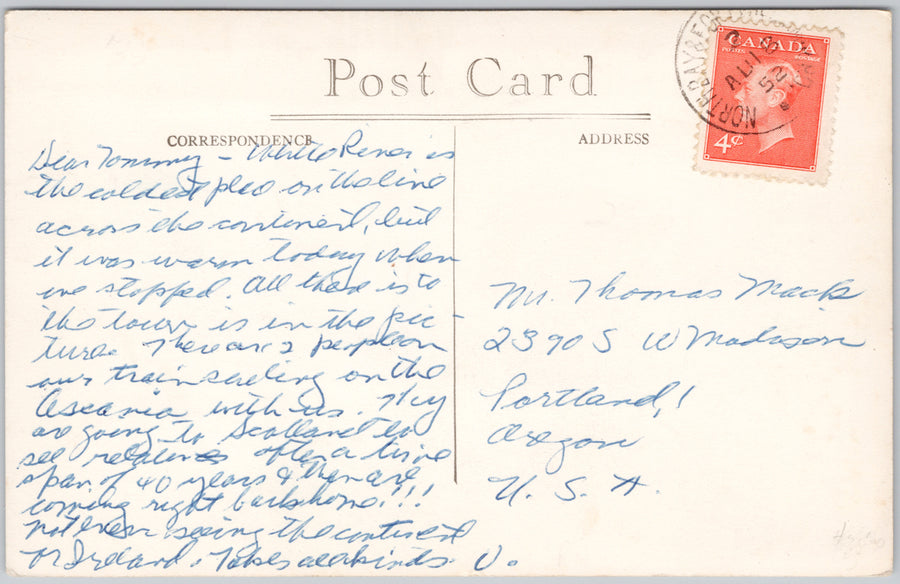 Post Card
CORRESPONDENCE
ADDRESS
CANADA
POSTES POSTAGE
4¢
NORTH BAY &
AU 18
52
Dear Tommy - White River is
the coldest place on the line
across the continent, but
it was warm today when
we stopped. All there is to
the town is in the pic-
ture. There are 2 people on
our train sailing on the
Ascania with us. They
are going to Scotland to
see relatives after a time
span of 40 years & then are
coming right back home!!!
not even seeing the continent
or Ireland. Takes all kinds. V.
Mr. Thomas Mack
2390 S W Madison
Portland,
Oregon
U. S. A.